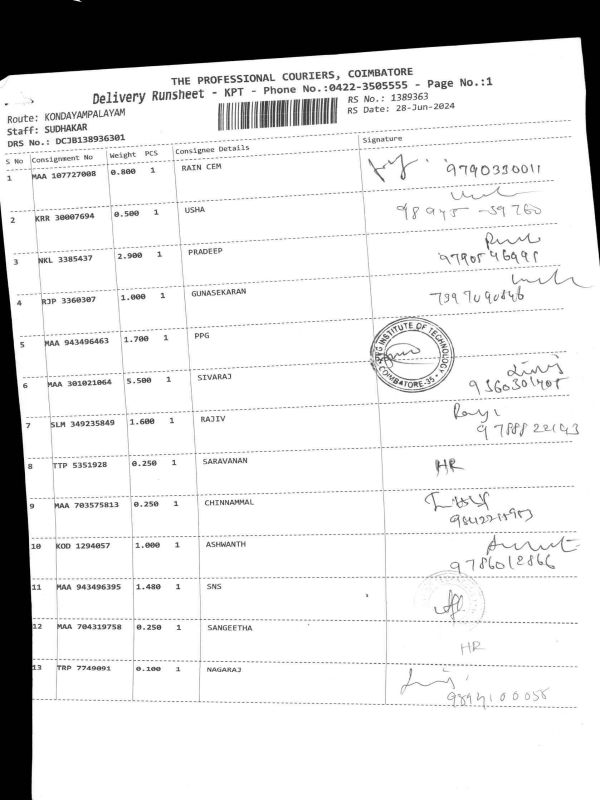 THE PROFESSIONAL COURIERS, COIMBATORE
Delivery Runsheet - KPT - Phone No.:0422-3505555 - Page No.:1
Route: KONDAYAMPALAYAM
RS No.: 1389363
Staff: SUDHAKAR
RS Date: 28-Jun-2024
DRS No.: DCJB138936301
S No Consignment No Weight PCS Consignee Details Signature
1 MAA 107727008 0.800 1 RAIN CEM 9790330011
2 KRR 30007694 0.500 1 USHA
3 NKL 3385437 2.900 1 PRADEEP
4 RJP 3360307 1.000 1 GUNASEKARAN
5 MAA 943496463 1.700 1 PPG
INSTITUTE OF TECHNOLOGY
COIMBATORE-35
6 MAA 301021064 5.500 1 SIVARAJ
9360301408
7 SLM 349235849 1.600 1 RAJIV
8 TTP 5351928 0.250 1 SARAVANAN HR
9 MAA 703575813 0.250 1 CHINNAMMAL
10 KOD 1294057 1.000 1 ASHWANTH
9786012866
11 MAA 943496395 1.480 1 SNS
12 MAA 704319758 0.250 1 SANGEETHA HR
13 TRP 7749091 0.100 1 NAGARAJ